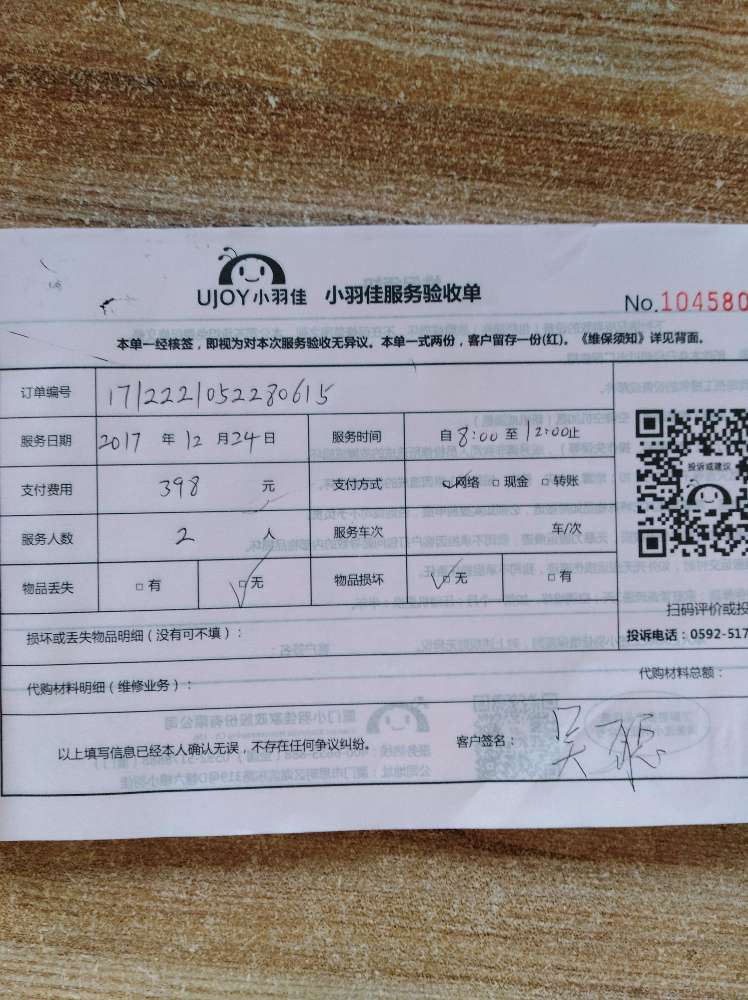 UJOY小羽佳 小羽佳服务验收单
No.104580
本单一经核签，即视为对本次服务验收无异议。本单一式两份，客户留存一份(红)。《维保须知》详见背面。
订单编号 1712221052280615
服务日期 2017 年 12 月 24 日 服务时间 自 8:00 至 12:00止
支付费用 398 元 支付方式 网络 □ 现金 □ 转账
服务人数 2 人 服务车次 车/次
物品丢失 □ 有 ✓□ 无 物品损坏 ✓□ 无 □ 有
投诉或建议
扫码评价或投
损坏或丢失物品明细（没有可不填）：
投诉电话：0592-517
代购材料明细（维修业务）：
代购材料总额：
以上填写信息已经本人确认无误，不存在任何争议纠纷。 客户签名：吴